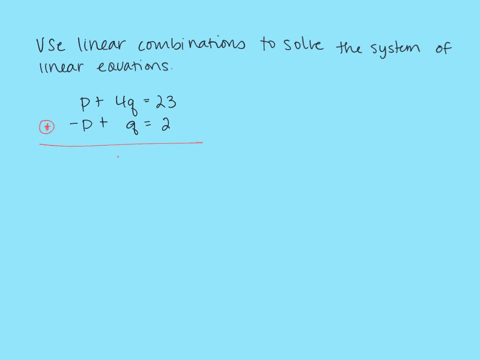 Use linear combinations to solve the system of
linear equations.
p + 4q = 23
+ -p + q = 2